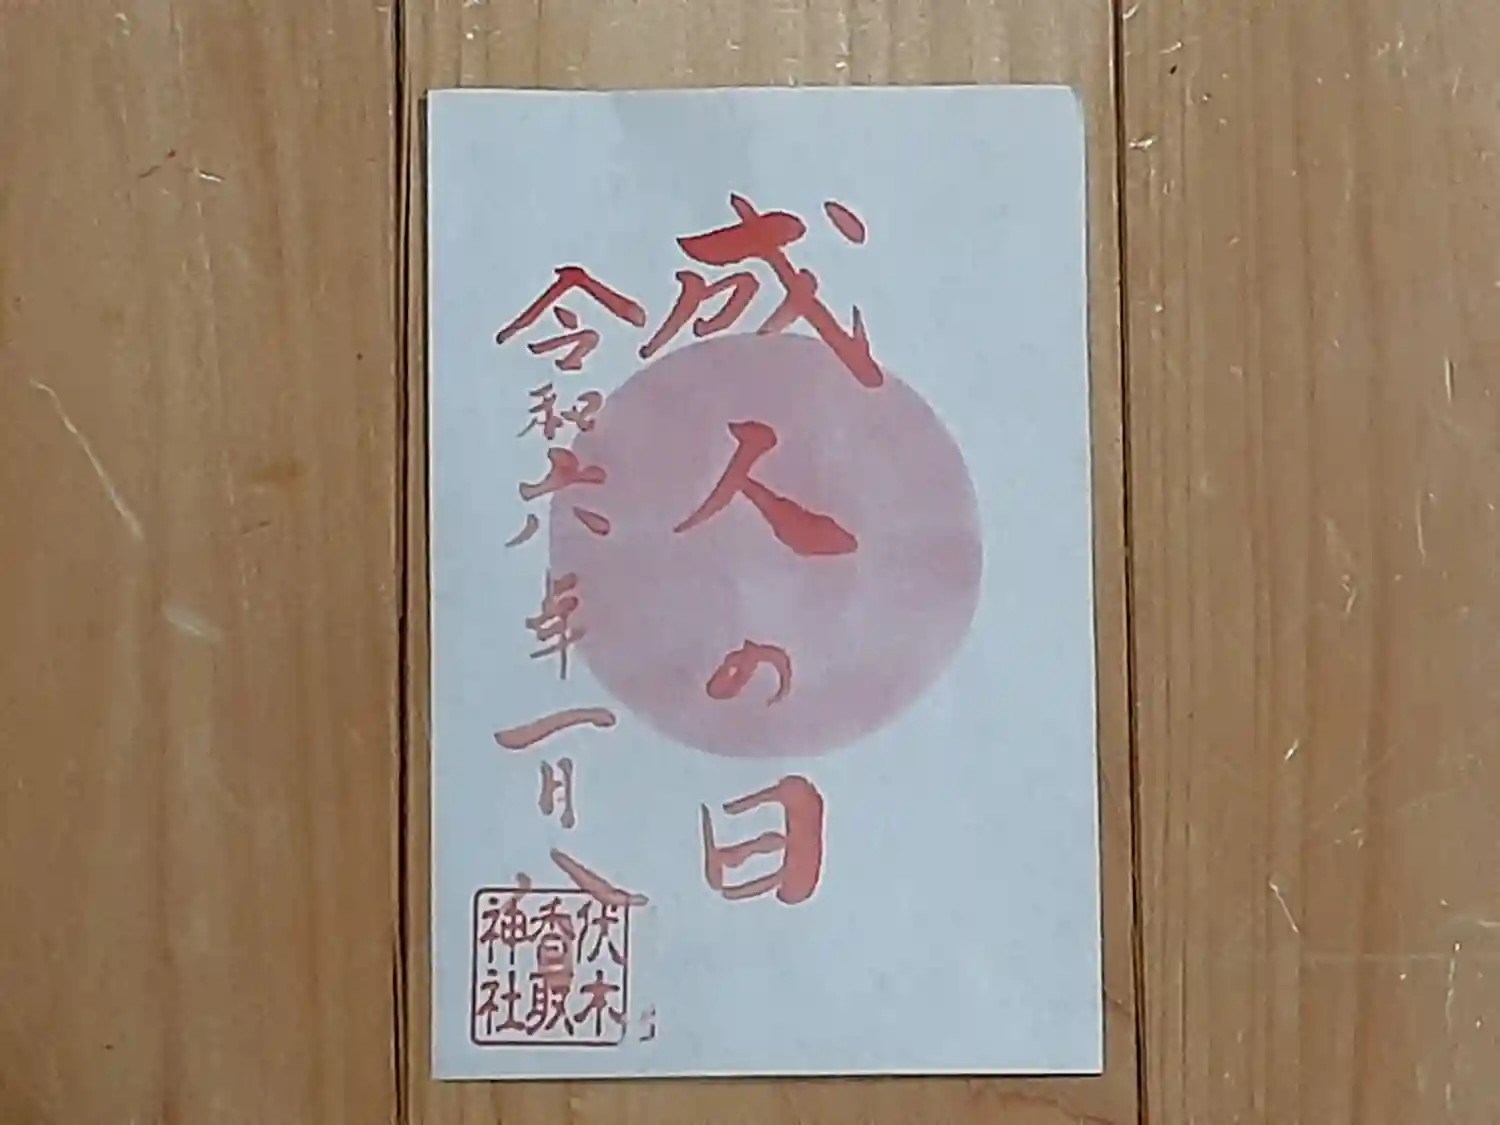 成人の日
令和六年一月八日
伏木
香取
神社